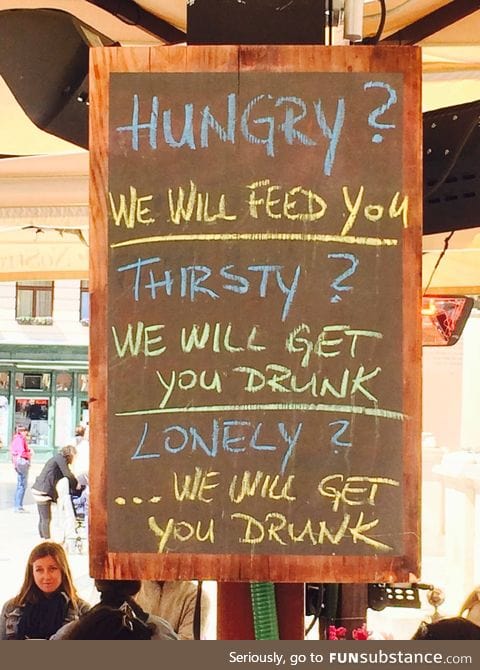 HUNGRY?
WE WILL FEED YOU
THIRSTY?
WE WILL GET
YOU DRUNK
LONELY?
... WE WILL GET
YOU DRUNK
Seriously, go to FUNsubstance.com